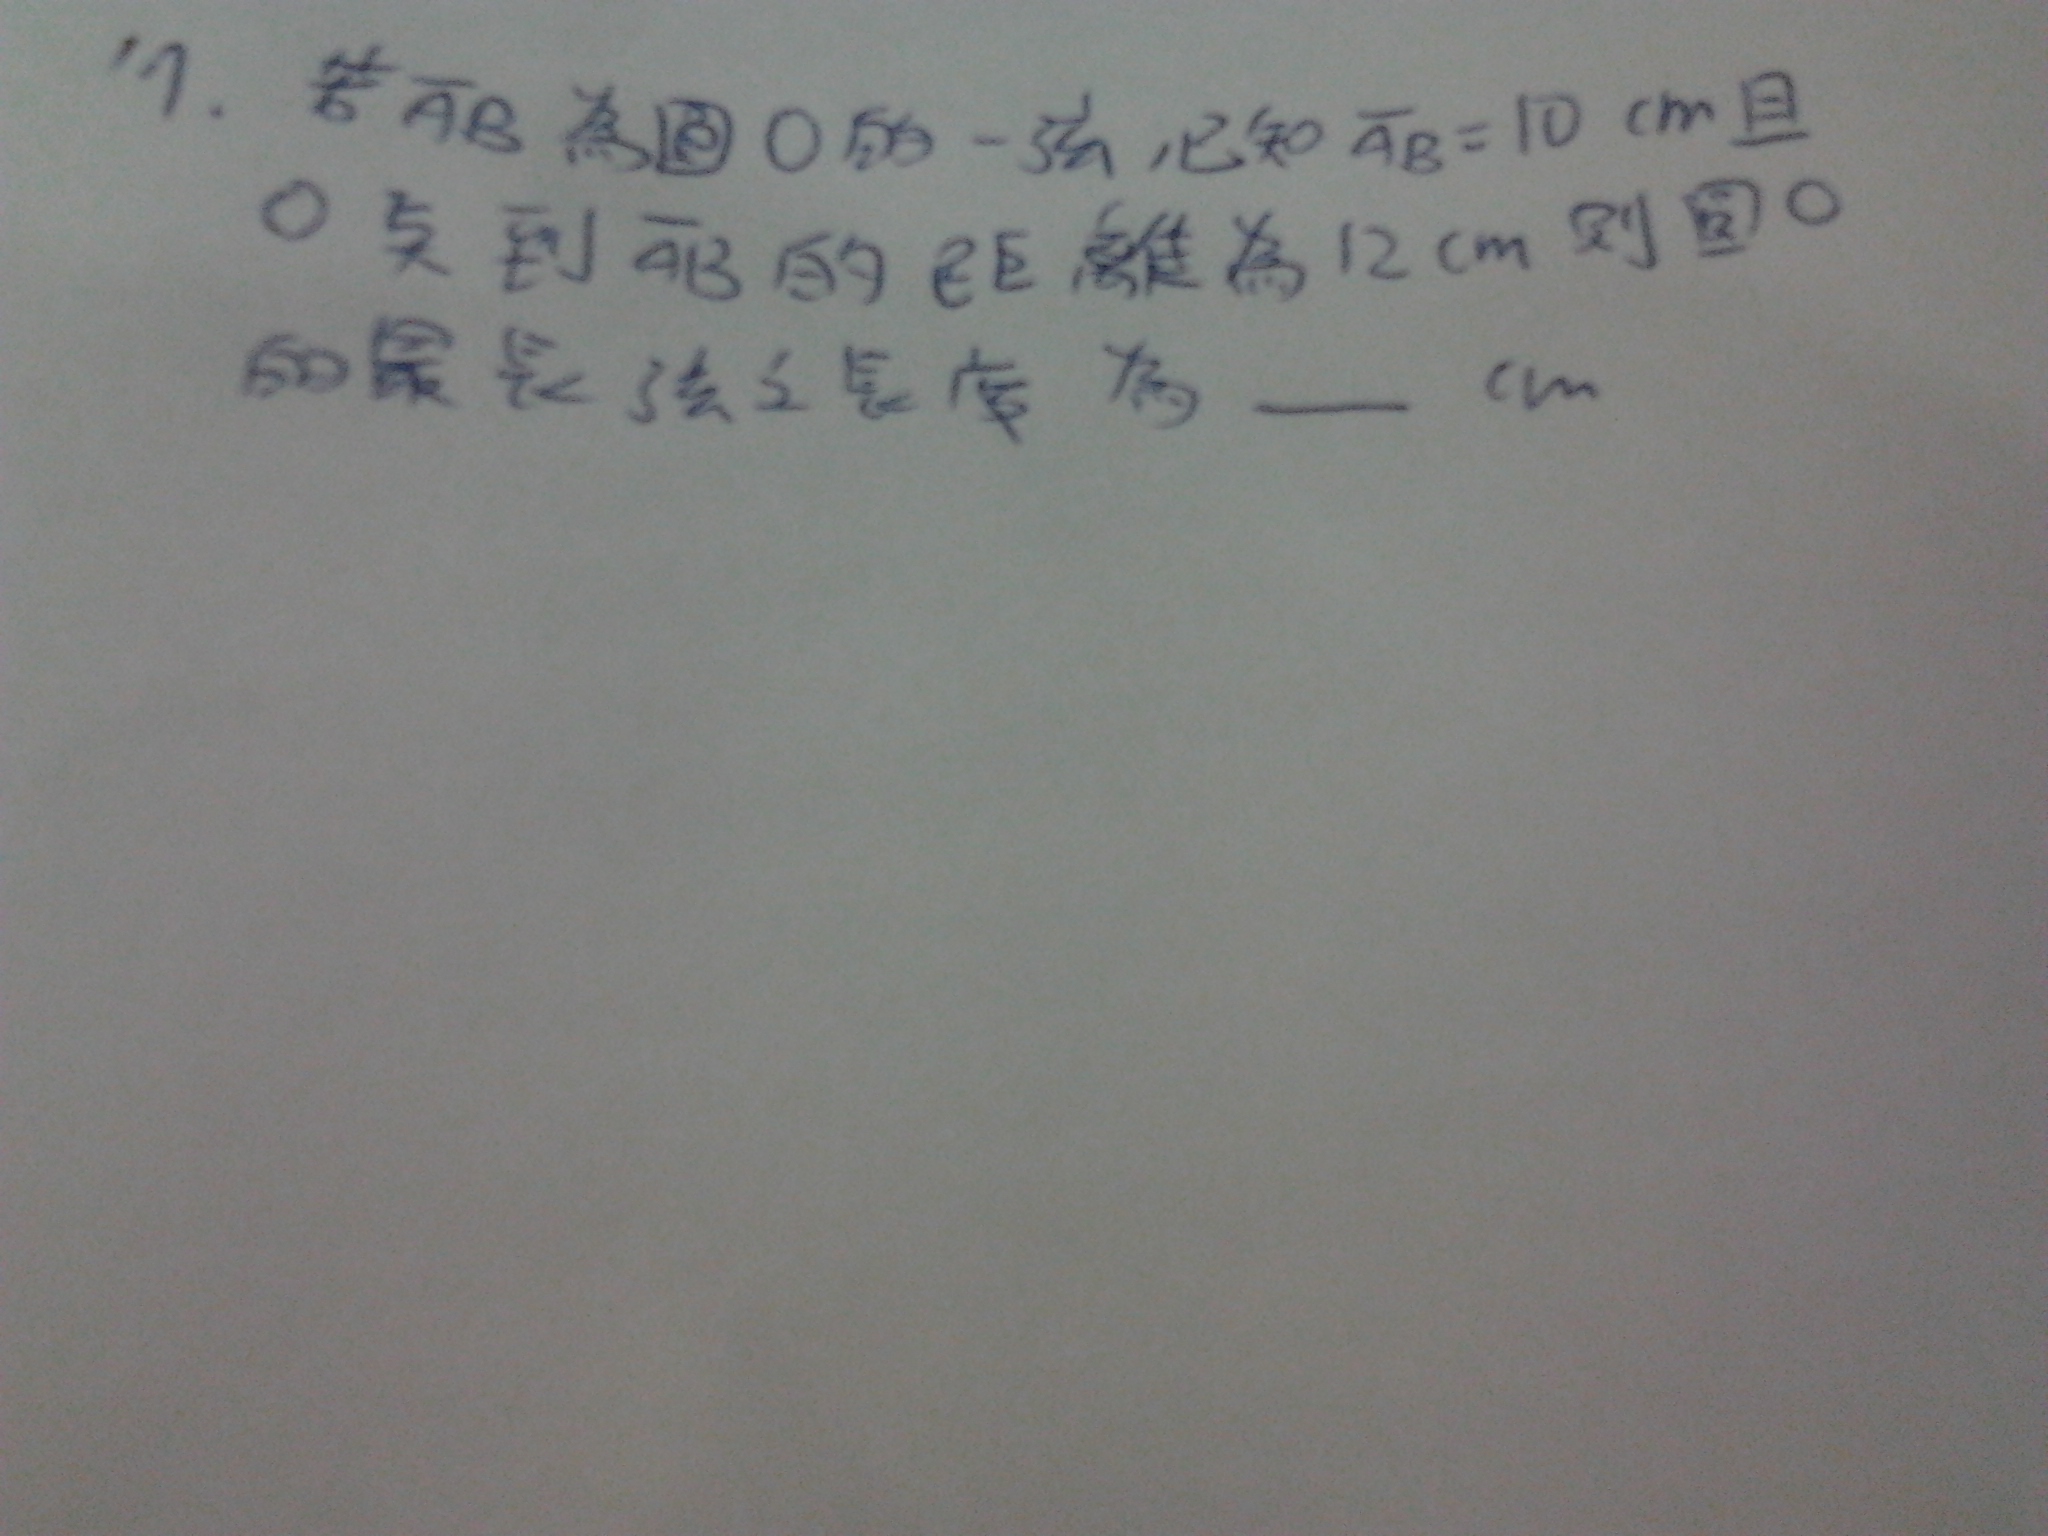 1. 若AB為圓O的一弦,已知AB=10 cm且
O点到AB的距離為12cm則圓O
的最長弦之長度為___ cm